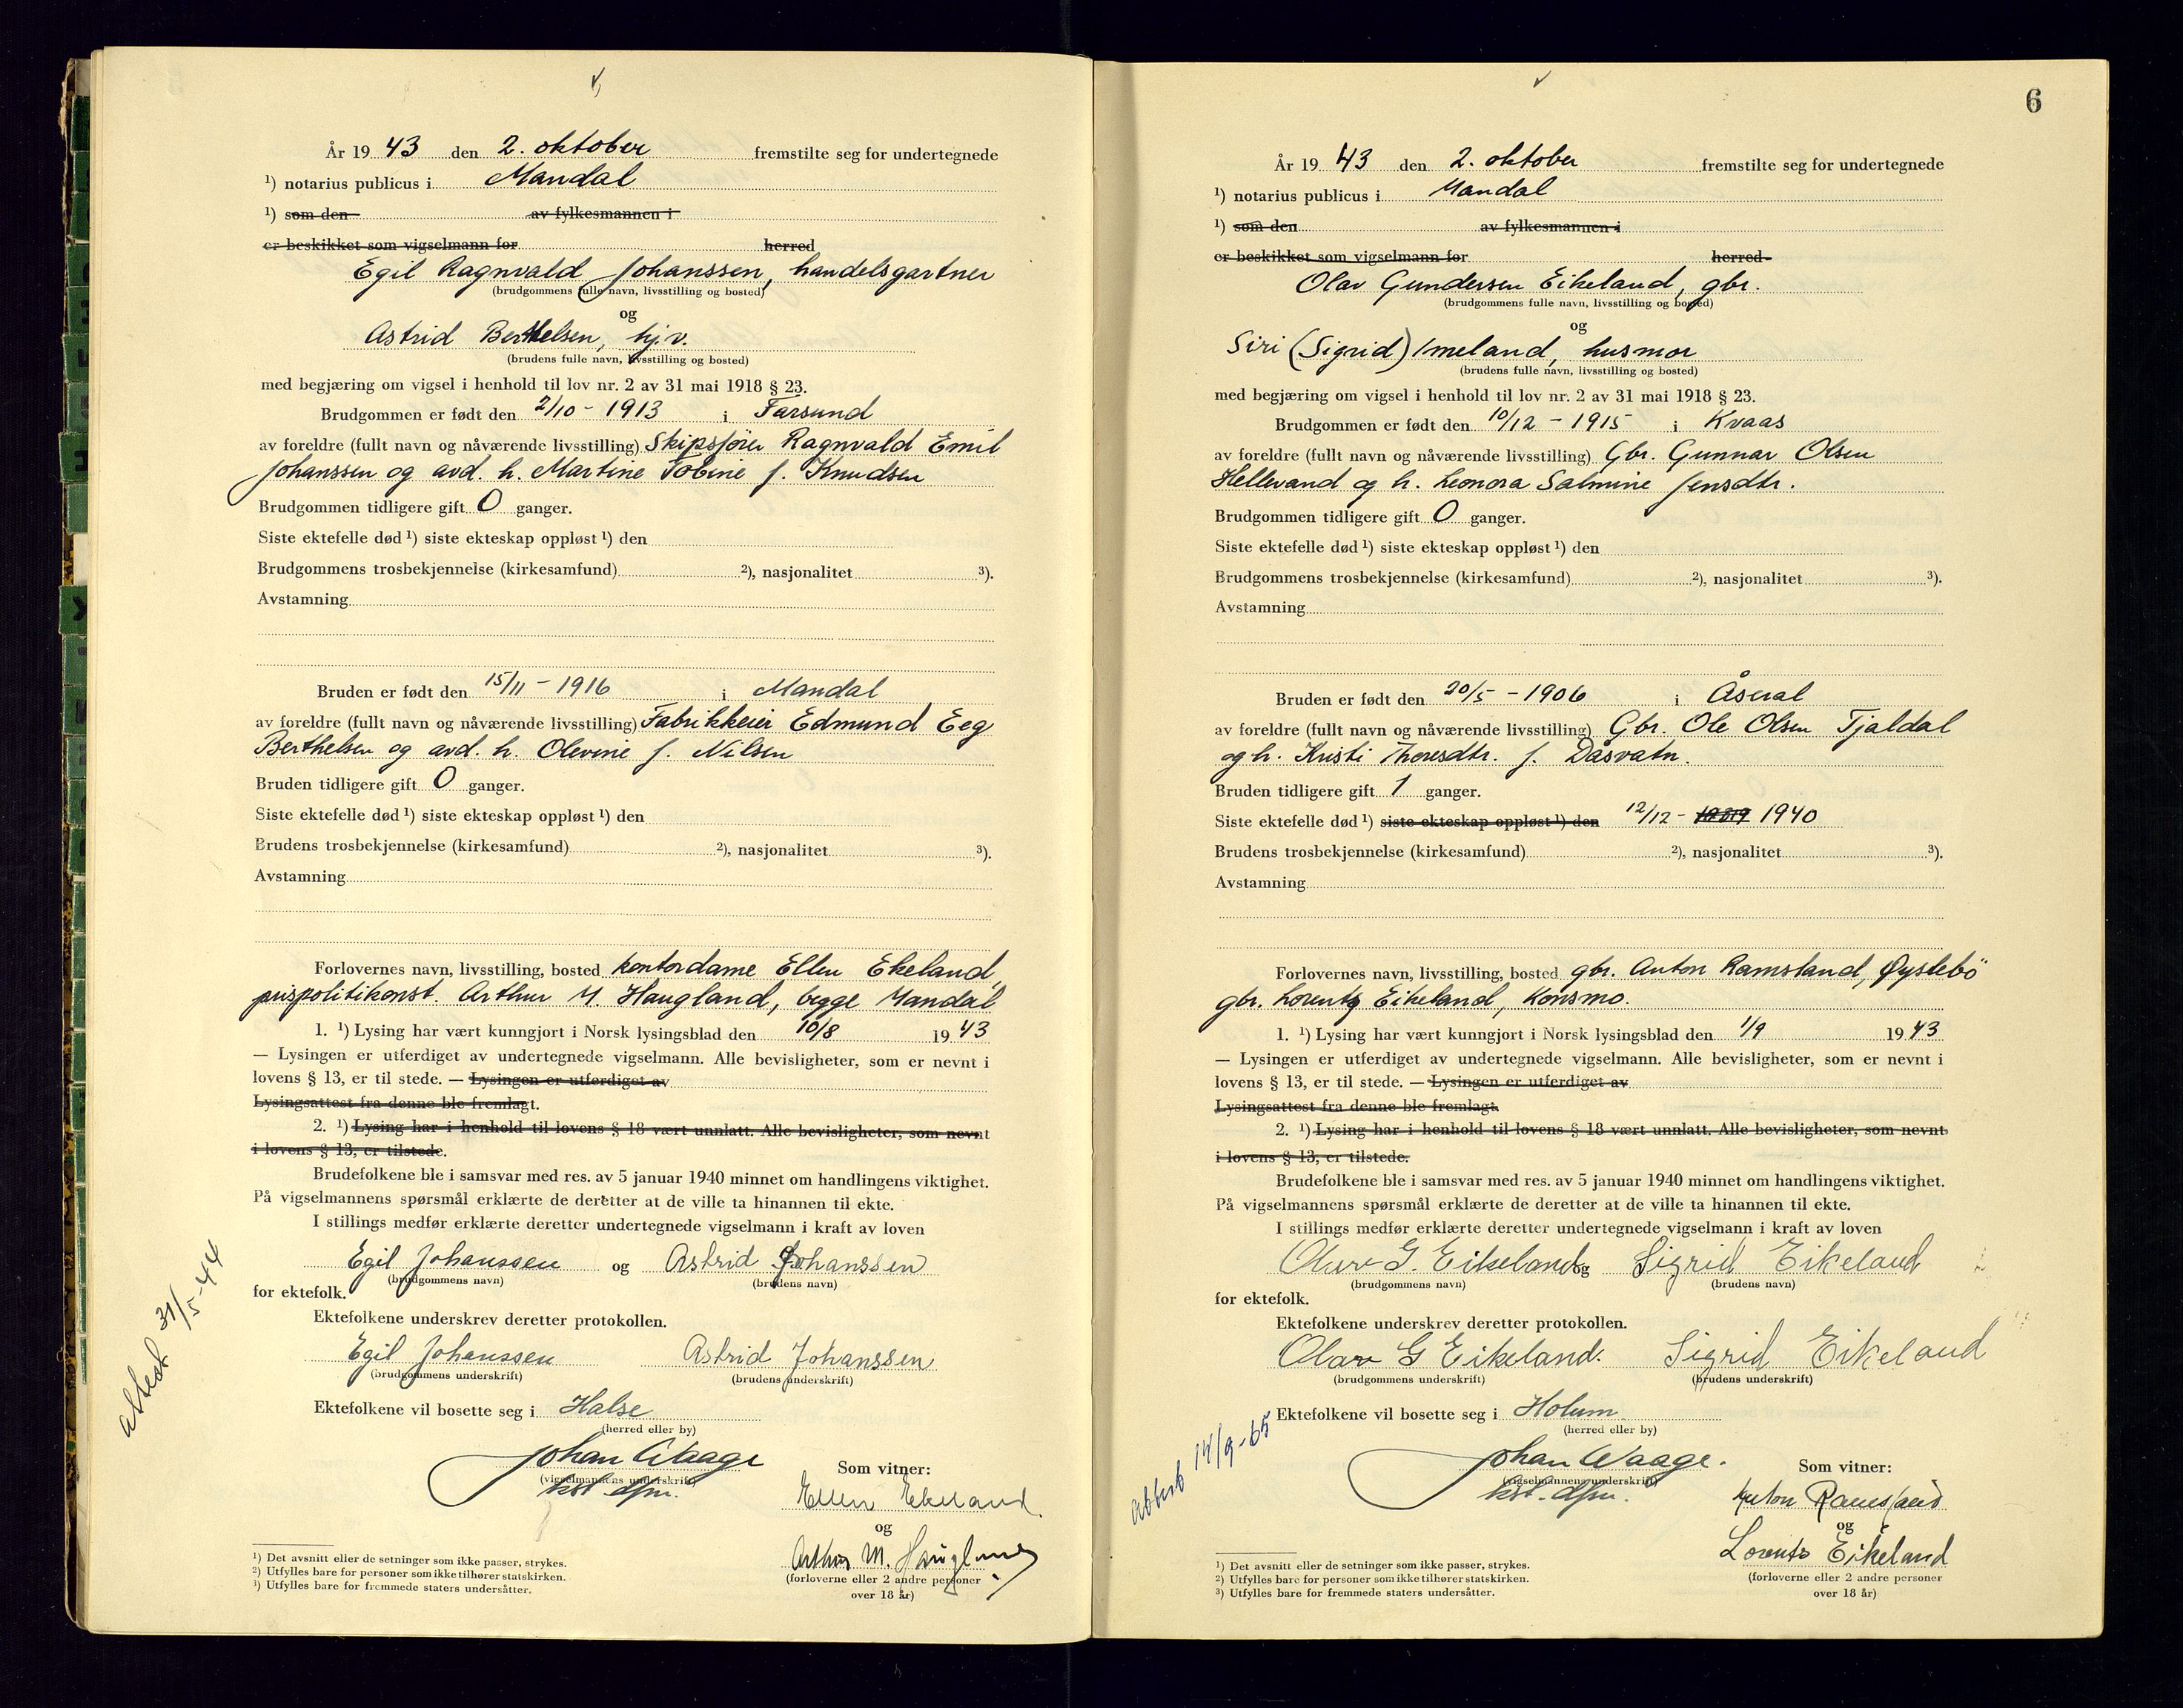 År 19 43 den 2. oktober fremstilte seg for undertegnede
¹) notarius publicus i Mandal
¹) som den av fylkesmannen i
er beskikket som vigselmann for herred
Egil Ragnvald Johanssen, handelsgartner
(brudgommens fulle navn, livsstilling og bosted)
og
Astrid Berthelsen, hjv.
(brudens fulle navn, livsstilling og bosted)
med begjæring om vigsel i henhold til lov nr. 2 av 31 mai 1918 § 23.
Brudgommen er født den 2/10 - 1913 i Farsund
av foreldre (fullt navn og nåværende livsstilling) Skipsfører Ragnvald Emil
Johanssen og avd. h. Martine Tobine f. Knudsen
Brudgommen tidligere gift 0 ganger.
Siste ektefelle død ¹) siste ekteskap oppløst ¹) den
Brudgommens trosbekjennelse (kirkesamfund) ²), nasjonalitet ³).
Avstamning
Bruden er født den 15/11 - 1916 i Mandal
av foreldre (fullt navn og nåværende livsstilling) Fabrikkeier Edmund Eeg
Berthelsen og avd. h. Olevine f. Nilsen
Bruden tidligere gift 0 ganger.
Siste ektefelle død ¹) siste ekteskap oppløst ¹) den
Brudens trosbekjennelse (kirkesamfund) ²), nasjonalitet ³).
Avstamning
Forlovernes navn, livsstilling, bosted kontordame Ellen Ekeland,
prispolitikonst. Arthur M. Haugland, begge Mandal
1. ¹) Lysing har vært kunngjort i Norsk lysingsblad den 10/8 19 43
— Lysingen er utferdiget av undertegnede vigselmann. Alle bevisligheter, som er nevnt i
lovens § 13, er til stede. — Lysingen er utferdiget av
Lysingsattest fra denne ble fremlagt.
2. ¹) Lysing har i henhold til lovens § 18 vært unnlatt. Alle bevisligheter, som nevnt
i lovens § 13, er tilstede.
Brudefolkene ble i samsvar med res. av 5 januar 1940 minnet om handlingens viktighet.
På vigselmannens spørsmål erklærte de deretter at de ville ta hinannen til ekte.
I stillings medfør erklærte deretter undertegnede vigselmann i kraft av loven
Egil Johanssen og Astrid Johanssen
(brudgommens navn) (brudens navn)
for ektefolk.
Ektefolkene underskrev deretter protokollen.
Egil Johanssen Astrid Johanssen
(brudgommens underskrift) (brudens underskrift)
Ektefolkene vil bosette seg i Halse
(herred eller by)
Johan Waage
(vigselmannens underskrift)
kst. dfm.
Som vitner:
Ellen Ekeland
og
Arthur M. Haugland
(forloverne eller 2 andre personer
over 18 år)
¹) Det avsnitt eller de setninger som ikke passer, strykes.
²) Utfylles bare for personer som ikke tilhører statskirken.
³) Utfylles bare for fremmede staters undersåtter.
attest 31/5-44
6
År 19 43 den 2. oktober fremstilte seg for undertegnede
¹) notarius publicus i Mandal
¹) som den av fylkesmannen i
er beskikket som vigselmann for herred
Olav Gundersen Eikeland, gbr.
(brudgommens fulle navn, livsstilling og bosted)
og
Siri (Sigrid) Imeland, husmor
(brudens fulle navn, livsstilling og bosted)
med begjæring om vigsel i henhold til lov nr. 2 av 31 mai 1918 § 23.
Brudgommen er født den 10/12 - 1915 i Kvaas
av foreldre (fullt navn og nåværende livsstilling) Gbr. Gunnar Olsen
Hellevand og h. Leonora Salmine Jensdtr.
Brudgommen tidligere gift 0 ganger.
Siste ektefelle død ¹) siste ekteskap oppløst ¹) den
Brudgommens trosbekjennelse (kirkesamfund) ²), nasjonalitet ³).
Avstamning
Bruden er født den 20/5 - 1906 i Åseral
av foreldre (fullt navn og nåværende livsstilling) Gbr. Ole Olsen Tjaldal
og h. Kristi Thoresdtr. f. Dåsvatn.
Bruden tidligere gift 1 ganger.
Siste ektefelle død ¹) siste ekteskap oppløst ¹) den 12/12 - 1940
Brudens trosbekjennelse (kirkesamfund) ²), nasjonalitet ³).
Avstamning
Forlovernes navn, livsstilling, bosted gbr. Anton Ramsland, Øyslebö
gbr. Lorentz Eikeland, Konsmo.
1. ¹) Lysing har vært kunngjort i Norsk lysingsblad den 1/9 19 43
— Lysingen er utferdiget av undertegnede vigselmann. Alle bevisligheter, som er nevnt i
lovens § 13, er til stede. — Lysingen er utferdiget av
Lysingsattest fra denne ble fremlagt.
2. ¹) Lysing har i henhold til lovens § 18 vært unnlatt. Alle bevisligheter, som nevnt
i lovens § 13, er tilstede.
Brudefolkene ble i samsvar med res. av 5 januar 1940 minnet om handlingens viktighet.
På vigselmannens spørsmål erklærte de deretter at de ville ta hinannen til ekte.
I stillings medfør erklærte deretter undertegnede vigselmann i kraft av loven
Olav G. Eikeland og Sigrid Eikeland
(brudgommens navn) (brudens navn)
for ektefolk.
Ektefolkene underskrev deretter protokollen.
Olav G Eikeland. Sigrid Eikeland
(brudgommens underskrift) (brudens underskrift)
Ektefolkene vil bosette seg i Holum
(herred eller by)
Johan Waage.
(vigselmannens underskrift)
kst. dfm.
Som vitner:
Anton Ramsland
og
Lorentz Eikeland
(forloverne eller 2 andre personer
over 18 år)
¹) Det avsnitt eller de setninger som ikke passer, strykes.
²) Utfylles bare for personer som ikke tilhører statskirken.
³) Utfylles bare for fremmede staters undersåtter.
attest 14/9-65